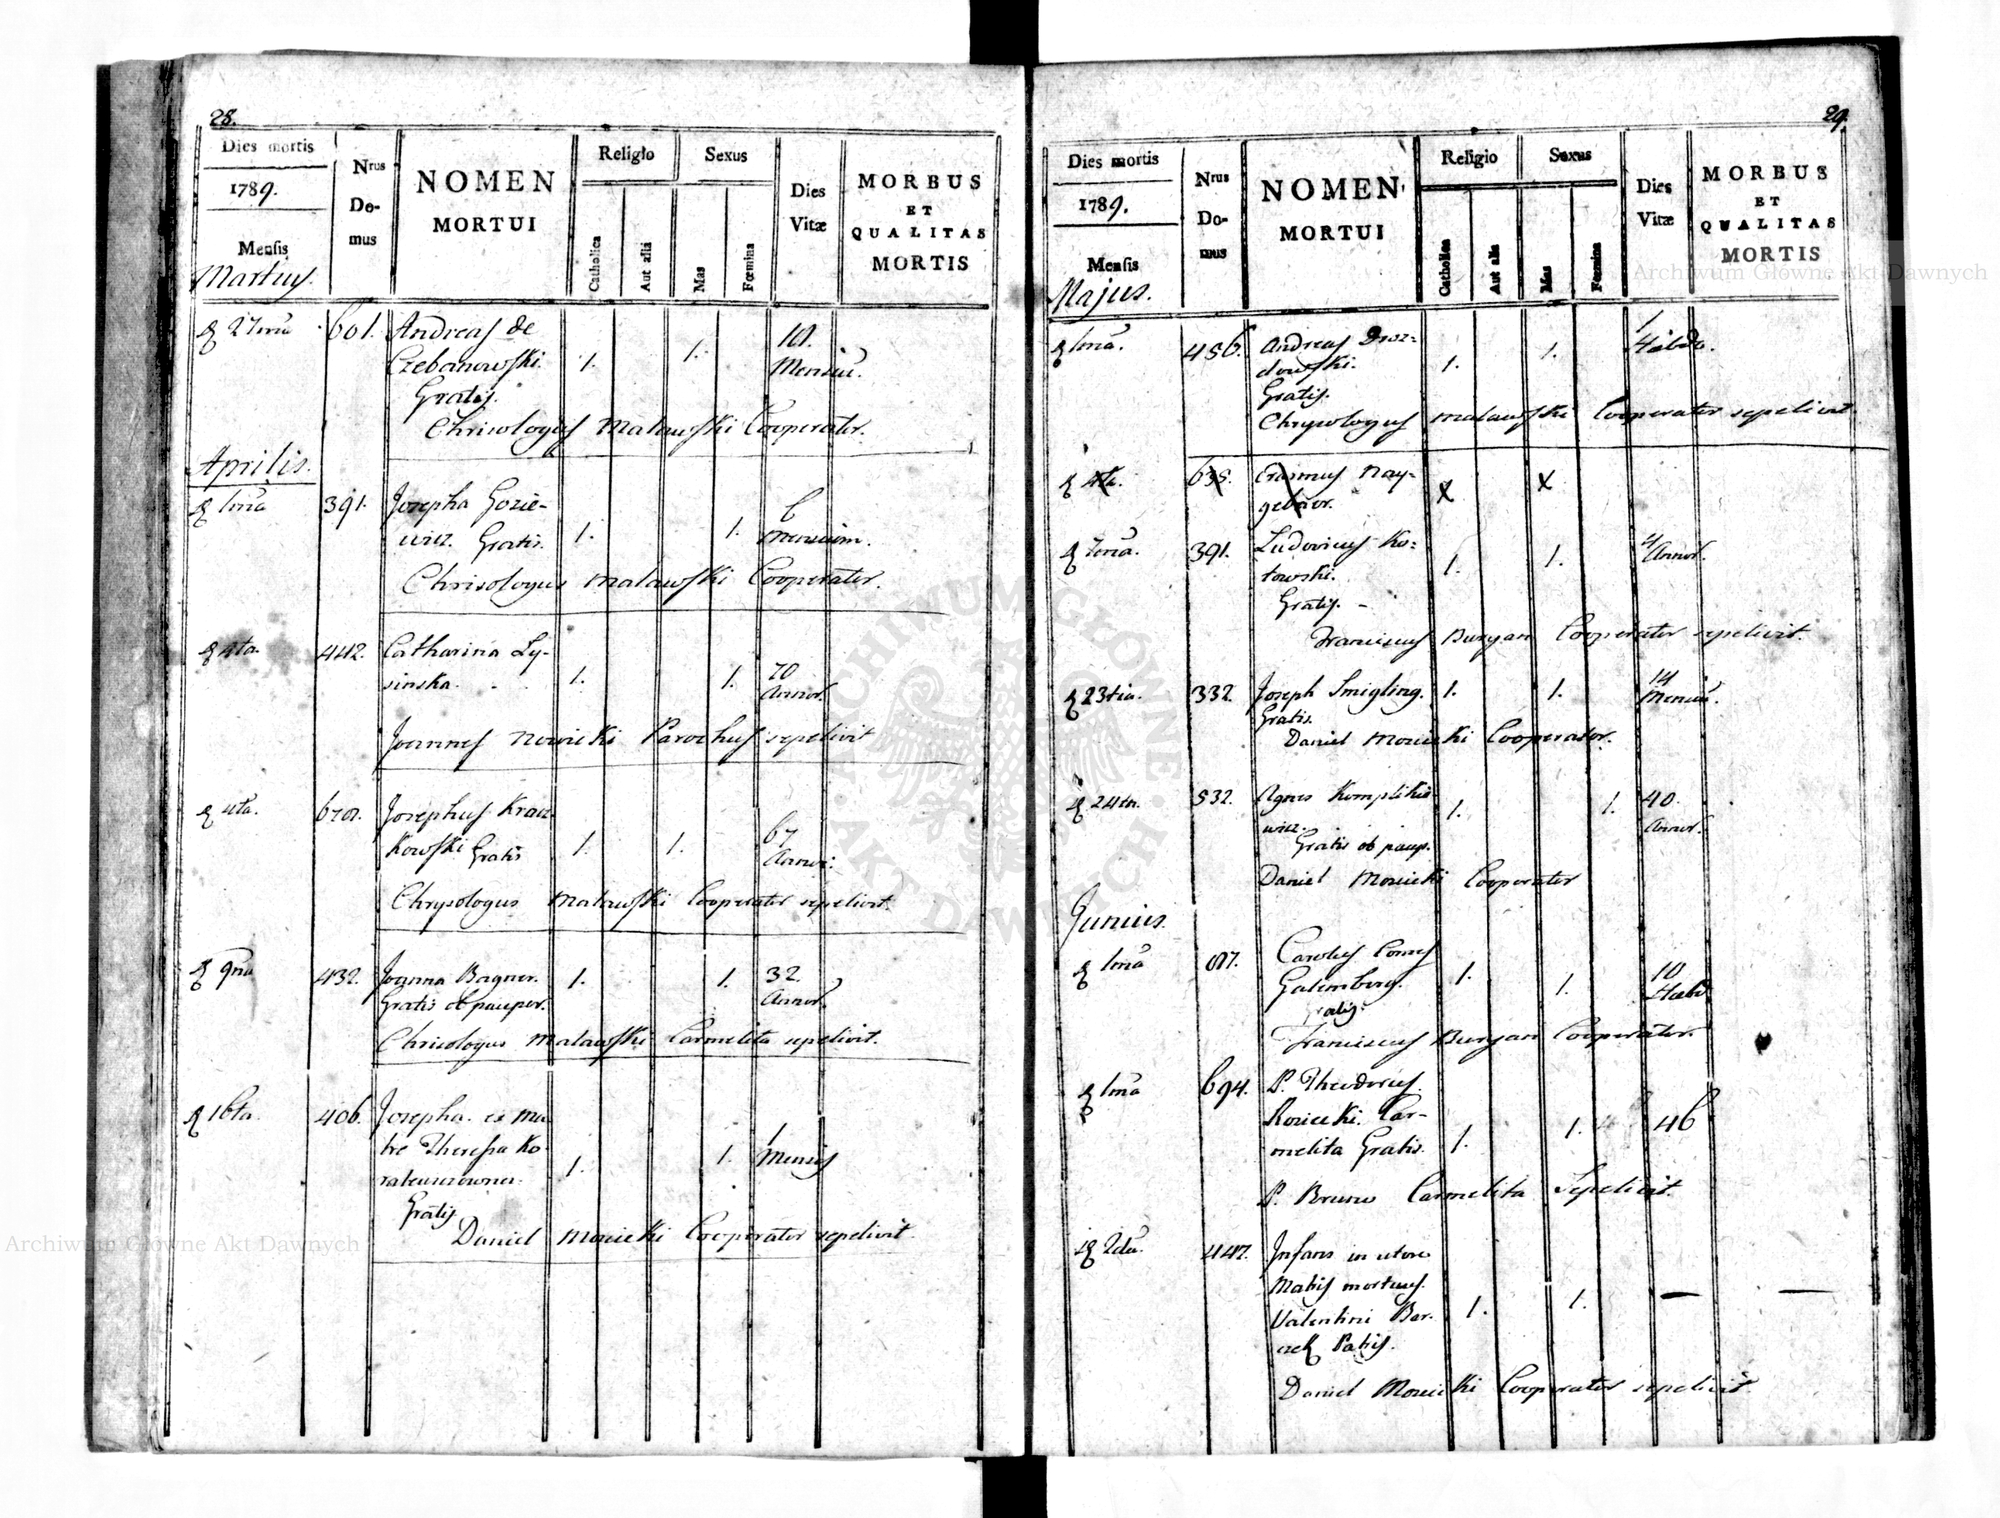 28.
Dies mortis
1789.
Mensis
Martius.
Nrus
Do-
mus
NOMEN
MORTUI
Religio
Catholica
Aut alia
Sexus
Mas
Fœmina
Dies
Vitæ
MORBUS
ET
QUALITAS
MORTIS
27ma 601. Andreas de
Czebanowski.
Gratis.
1. 1. 10.
Mensiu.
Chrisologus Malawski Cooperator.
Aprilis.
1ma 391. Josepha Gozie-
wicz. Gratis.
1. 1. 6
mensium.
Chrisologus Malawski Cooperator.
4ta 442. Catharina Ly-
sinska.
1. 1. 70
Annor.
Joannes Nowicki Parochus sepelivit
4ta. Josephus Kra
kowski Gratis
1. 1. 67
Annor.
Chrysologus Malawski Cooperator sepelivit.
9na 432. Joanna Bagner. 1. 1. 32.
Gratis ob pauper. Annor.
Chrisologus Malawski Carmelita sepelivit.
16ta. 406. Josepha ex ma
tre Theresia Ko
1. 1. 1
Mensis
Gratis
Daniel Cooperator sepelivit
29.
Dies mortis
1789.
Mensis
Majus.
Nrus
Do-
mus
NOMEN
MORTUI
Religio
Catholica
Aut alia
Sexus
Mas
Fœmina
Dies
Vitæ
MORBUS
ET
QUALITAS
MORTIS
1ma. 456. Andreas Droz-
dowski.
Gratis.
1. 1. 1
Hebdo.
Chrysologus Malawski Cooperator sepelivit
4ta. 635. Erasmus Nay-
gebaor.
7ma. 391. Ludovicus Ko-
towski.
Gratis. -
1. 1. 4
Annor.
Franciscus Buryan Cooperator sepelivit.
23tia. 332. Joseph Smigling. 1. 1. 14
Gratis. Mensiu.
Daniel Cooperator.
24ta. 532. Agnes
wicz.
Gratis ob paup.
1. 1. 40.
Annor.
Daniel Cooperator
Junius.
1ma Carolus Comes
Galemberg.
Gratis.
1. 1. 10
Hebd
Franciscus Buryan Cooperator.
1ma 694. P. Theodorus
Roziecki. Car-
melita Gratis.
1. 1. 46
P. Bruno Carmelita Sepelivit.
2da. 447. Infans in utero
Matris mortuus.
Valentini Bar-
czek Patris.
1. 1. — —
Daniel Cooperator sepelivit
Archiwum Główne Akt Dawnych
Archiwum Główne Akt Dawnych
ARCHIWUM GŁÓWNE AKT DAWNYCH